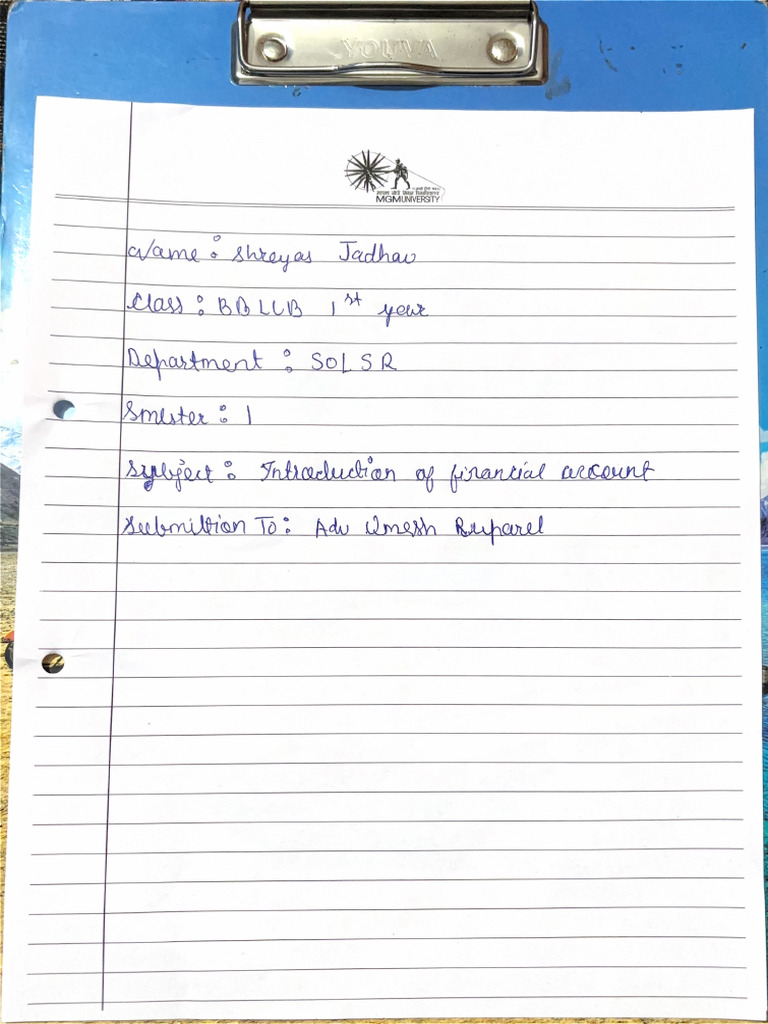 YOUVA
MGMUNIVERSITY
Name : Shreyas Jadhav
Class : BBLLB 1st year
Department : SOLSR
Smester : 1
Subject : Introduction of financial account
Submittion To : Adv Umesh Ruparel